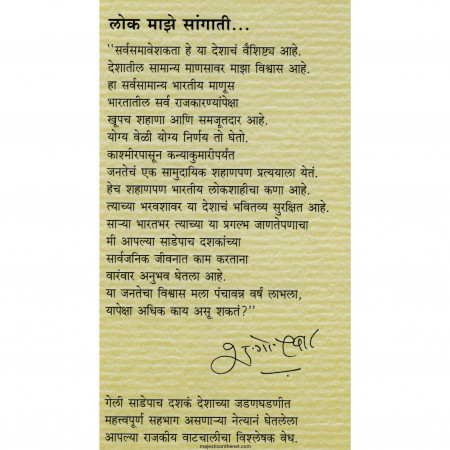 लोक माझे सांगाती...
"सर्वसमावेशकता हे या देशाचं वैशिष्ट्य आहे.
देशातील सामान्य माणसावर माझा विश्वास आहे.
हा सर्वसामान्य भारतीय माणूस
भारतातील सर्व राजकारण्यांपेक्षा
खूपच शहाणा आणि समजूतदार आहे.
योग्य वेळी योग्य निर्णय तो घेतो.
काश्मिरपासून कन्याकुमारीपर्यंत
जनतेचं एक सामुदायिक शहाणपण प्रत्ययाला येतं.
हेच शहाणपण भारतीय लोकशाहीचा कणा आहे.
त्याच्या भरवशावर या देशाचं भवितव्य सुरक्षित आहे.
साऱ्या भारतभर त्याच्या या प्रगल्भ जाणतेपणाचा
मी आपल्या साडेपाच दशकांच्या
सार्वजनिक जीवनात काम करताना
वारंवार अनुभव घेतला आहे.
या जनतेचा विश्वास मला पंचावन्न वर्षं लाभला,
यापेक्षा अधिक काय असू शकतं?"
गेली साडेपाच दशकं देशाच्या जडणघडणीत
महत्त्वपूर्ण सहभाग असणाऱ्या नेत्यानं घेतलेला
आपल्या राजकीय वाटचालीचा विश्लेषक वेध.
majesticonthenet.com